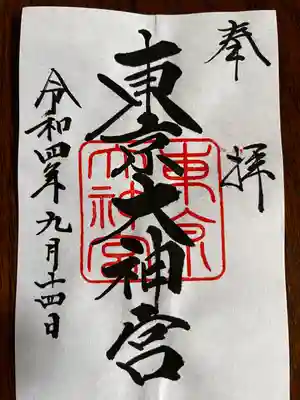 奉拝
東京大神宮
東京大神宮
令和四年九月十四日